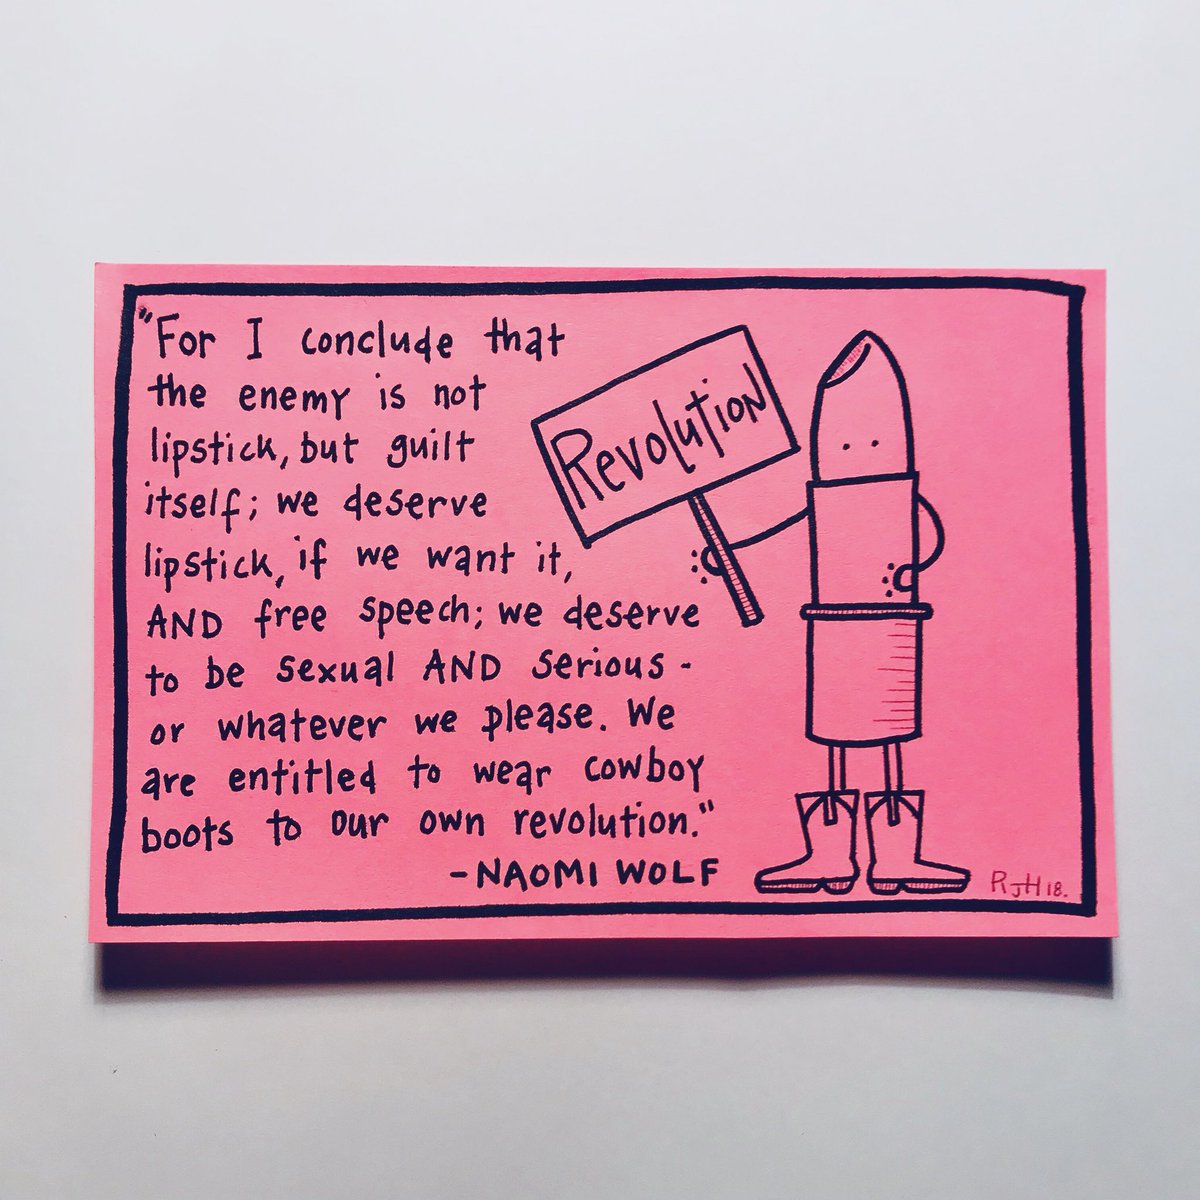 "For I conclude that
the enemy is not
lipstick, but guilt
itself; we deserve
lipstick, if we want it,
AND free speech; we deserve
to be sexual AND serious -
or whatever we please. We
are entitled to wear cowboy
boots to our own revolution."
- NAOMI WOLF
Revolution
RJH 18.